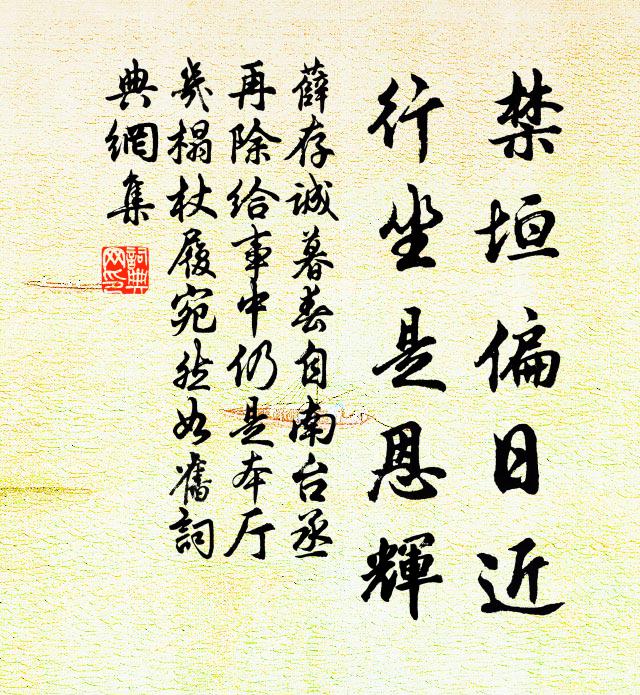 禁垣偏日近
行坐是恩輝
薛存诚暮春自南台丞
再除给事中仍是本厅
幾榻杖履宛然如舊詞
典網集
詞典
网印